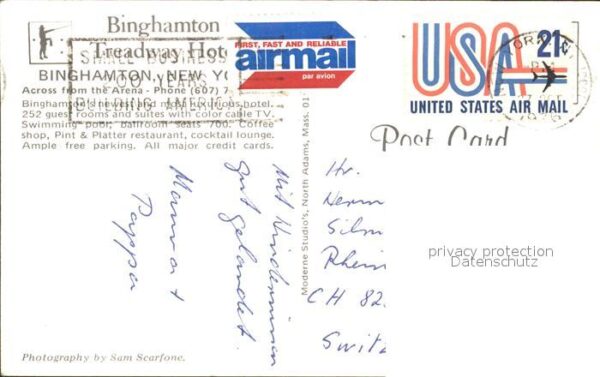 Binghamton
Treadway Hot
BINGHAMTON, NEW YO
Across from the Arena - Phone (607) 7
Binghamton's newest and most luxurious hotel.
252 guest rooms and suites with color cable TV.
Swimming pool, ballroom seats 700. Coffee
shop, Pint & Platter restaurant, cocktail lounge.
Ample free parking. All major credit cards.
SMALL BUSINESS
200 YEARS
OF SERVING AMERICA
FIRST, FAST AND RELIABLE
airmail
par avion
USA 21c
UNITED STATES AIR MAIL
Post Card
Mit Hindernissen
gut gelandet.
Mamma +
Pappa
Moderne Studio's, North Adams, Mass. 01
Hr.
Silm
Rhein
CH 82
Switz
privacy protection
Datenschutz
Photography by Sam Scarfone.